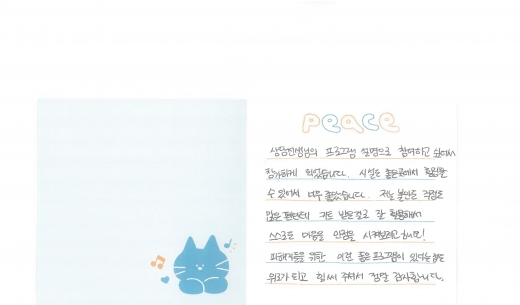 peace
상담선생님의 프로그램 설명으로 참여하고 싶어서
참가하게 되었습니다. 시설도 좋은곳에서 힐링할
수 있어서 너무 좋았습니다. 저는 불안도 걱정도
많은 편인데 키트 받은걸로 잘 활용해서
스스로도 마음을 안정을 시켜보려고 합니다!
피해자들을 위한 이런 좋은 프로그램이 있다는
위로가 되고 힘써 주셔서 정말 감사합니다.